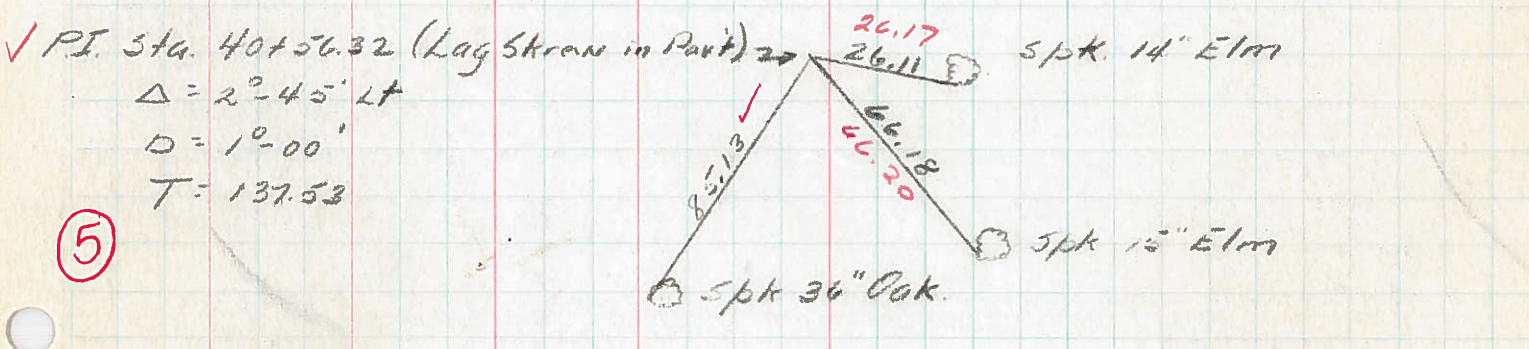 ✓ P.I. Sta. 40+56.32 (Lag Skrew in Pav't)
Δ = 2°-45' Lt
D = 1°-00'
T = 137.53
5
26.17
26.11
spk. 14" Elm
✓
85.13
66.18
66.20
spk 15" Elm
spk 36" Oak.